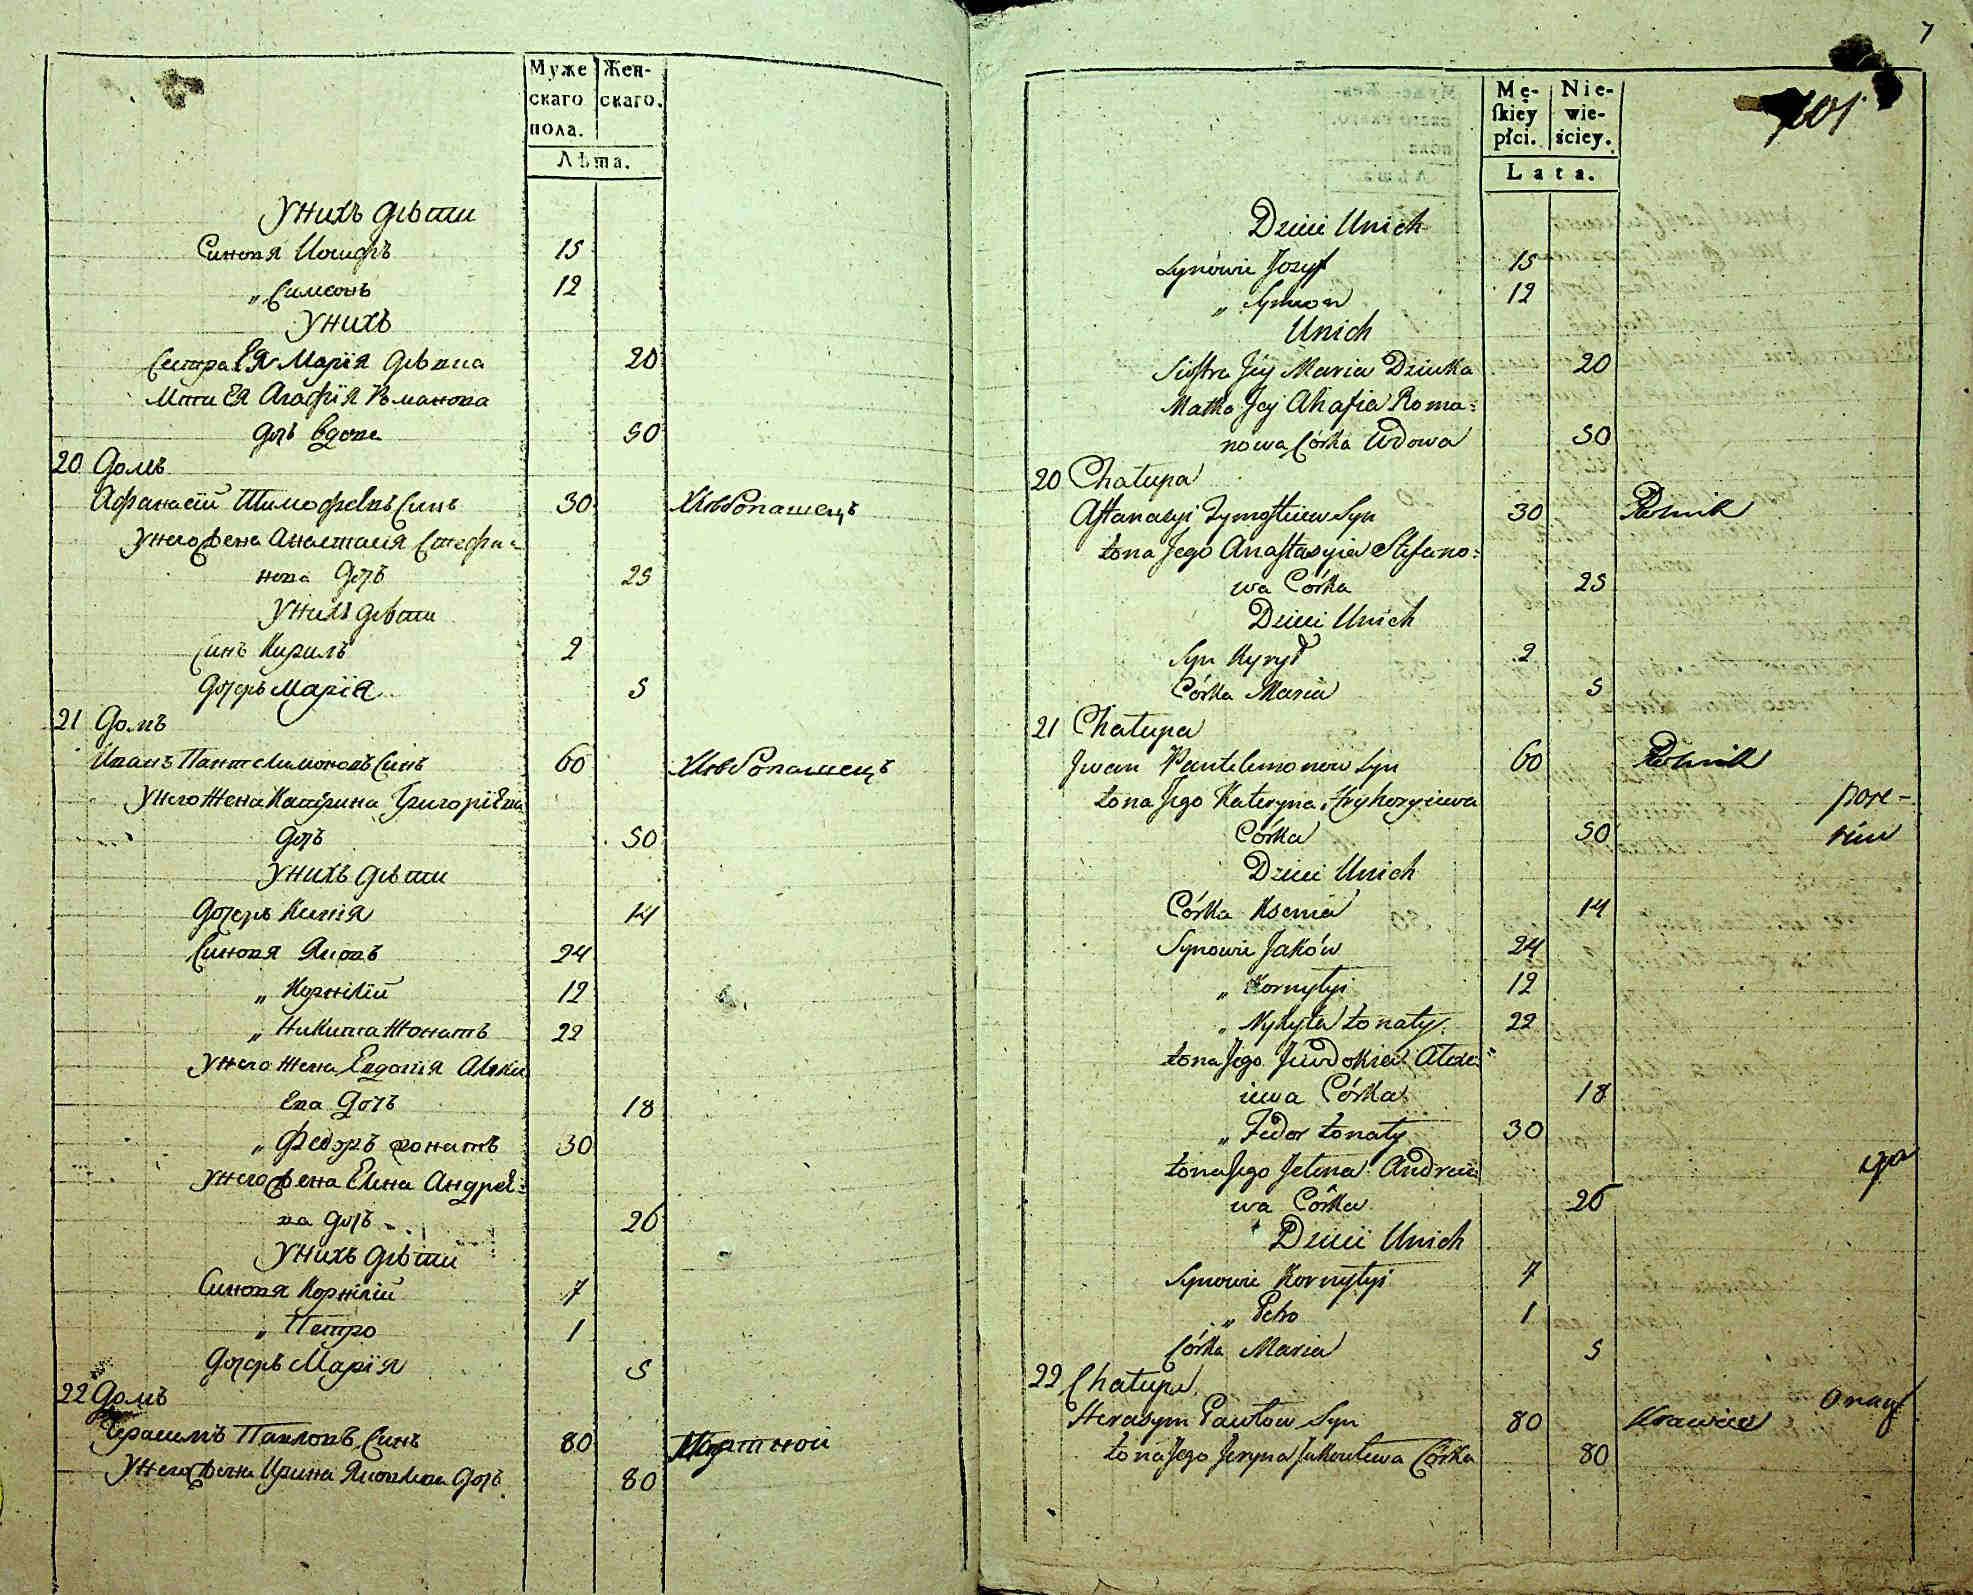 Муже
скаго
пола.
Жен-
скаго.
Лѣта.
Унихъ дѣти
Синовя Иосифъ 15
„ Симеонъ 12
Унихъ
Сестра Ея Марїя дѣвка 20
Мати Ея Агафїя Романова
дочъ вдова 50
20 Домъ
Афанасїй Тимофѣевъ Синъ 30 Хлѣбопашецъ
Унего жена Анастасїя Стефа-
нова Дочъ 25
Унихъ дѣти
Синъ Кирилъ 2
Дочеръ Марїя 5
21 Домъ
Иванъ Пантелимоновъ Синъ 60 Хлѣбопашецъ
Унего Жена Катерина Григорїева
дочъ 50
Унихъ дѣти
Дочеръ Ксенїя 14
Синовя Яковъ 24
„ Корнилїй 12
„ Никита Жонатъ 22
Унего жена Евдокїя Алекси
Ева Дочъ 18
„ Федоръ жонатъ 30
Унего жена Елена Андрее-
ва дочъ 26
Унихъ дѣти
Синовя Корнилїй 7
„ Петро 1
Дочеръ Марїя 5
22 Домъ
Герасимъ Павловъ Синъ 80 Портной
Унего жена Ирина Яковлева Дочъ 80
7
Mę-
skiey
płci.
Nie-
wie-
ściey.
Lata.
701
Dzieci Unich
Synowie Jozyf 15
„ Symeon 12
Unich
Siostra Jej Maria Dziewka 20
Matka Jej Ahafia Roma-
nowa Córka Wdowa 50
20 Chałupa
Aftanazyi Tymofiiew Syn 30 Rolnik
Żona Jego Anastasyia Stefano-
wa Córka 25
Dzieci Unich
Syn Kyrył 2
Córka Maria 5
21 Chałupa
Jwan Pantelemonow Syn 60 Rolnik
Żona Jego Kateryna Hryhoryiewa
Córka 50
Dzieci Unich
Córka Ksenia 14
Synowie Jaków 24
„ Kornyłyi 12
„ Nykyta żonaty 22
Żona Jego Jewdokia Alexi-
iewa Córka 18
„ Fedor żonaty 30
Żona Jego Jelena Andreie
wa Córka 26
Dzieci Unich
Synowie Kornyłyi 7
„ Petro 1
Córka Maria 5
22 Chałupa
Herasym Pawłow Syn 80 Krawiec
Żona Jego Jeryna Jakowlewa Córka 80